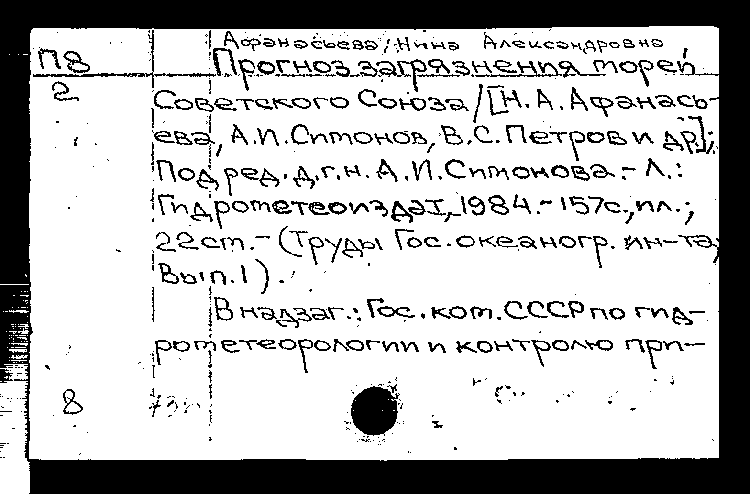 Афанасьева, Нина Александровна
П8 Прогноз загрязнения морей
2 Советского Союза / [Н. А. Афанась-
ева, А. И. Симонов, В. С. Петров и др.];
Под ред. д. г. н. А. И. Симонова. - Л.:
Гидрометеоиздат, 1984. - 157с., ил.;
22 cm. - (Труды Гос. океаногр. ин-та;
Вып. 1).
В надзаг.: Гос. ком. СССР по гид-
рометеорологии и контролю при-
8